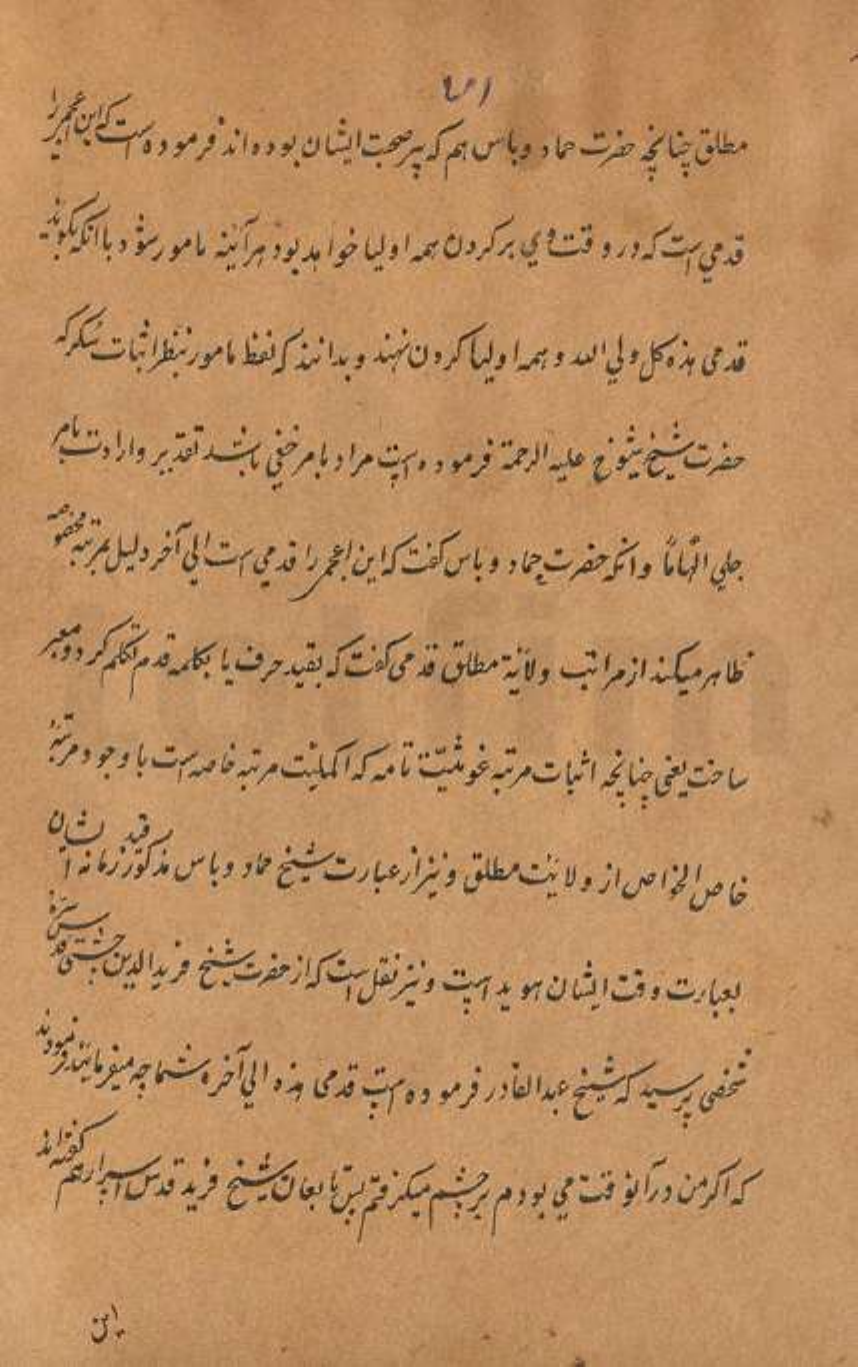 مطلق چنانچه حضرت حماد دباس هم که پیر صحبت ایشان بوده اند فرموده است که این عجمی را
قدمی است که در وقت وی بر گردن همه اولیا خواهد بود هر آئینه مامور شود بآنکه بگوید
قدمی هذه کل ولی الله و همه اولیا گردن نهند و بدانند که لفظ مامور بنظر اثبات سکر که
حضرت شیخ شیوخ علیه الرحمة فرموده است مراد بامر خفی باشد تقدیر وارادت بامر
جلی الهاماً وانکه حضرت حماد دباس گفت که این عجمی را قدمی است الی آخر دلیل بمرتبه مخصوصه
ظاهر میکند از مراتب ولایة مطلق قدمی گفت که بقید حرف یا بکلمه قدم تکلم کرد و معبر
ساخت یعنی چنانچه اثبات مرتبه غوثیّت تامه که اکملیت مرتبه خاصه است با وجود مرتبهٔ
خاص الخواص از ولایت مطلق و نیز از عبارت شیخ حماد دباس مذکور قید زمانه ایشان
بعبارت وقت ایشان هویدا است و نیز نقل است که از حضرت شیخ فرید الدین چشتی قدس سره
شخصی پرسید که شیخ عبدالقادر فرموده است قدمی هذه الی آخره شما چه میفرمائید فرمودند
که اگر من در آنوقت می بودم بر چشم میگرفتم پس تابعان شیخ فرید قدس اسرارهم گفته اند